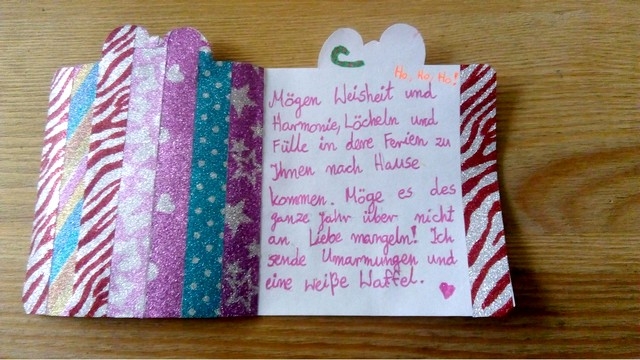 Ho, Ho, Ho!
Mögen Weisheit und
Harmonie, Löcheln und
Fülle in dere Ferien zu
Ihnen nach Hause
kommen. Möge es des
ganze Jahr über nicht
an Liebe mangeln! Ich
sende Umarmungen und
eine weiße Waffel.